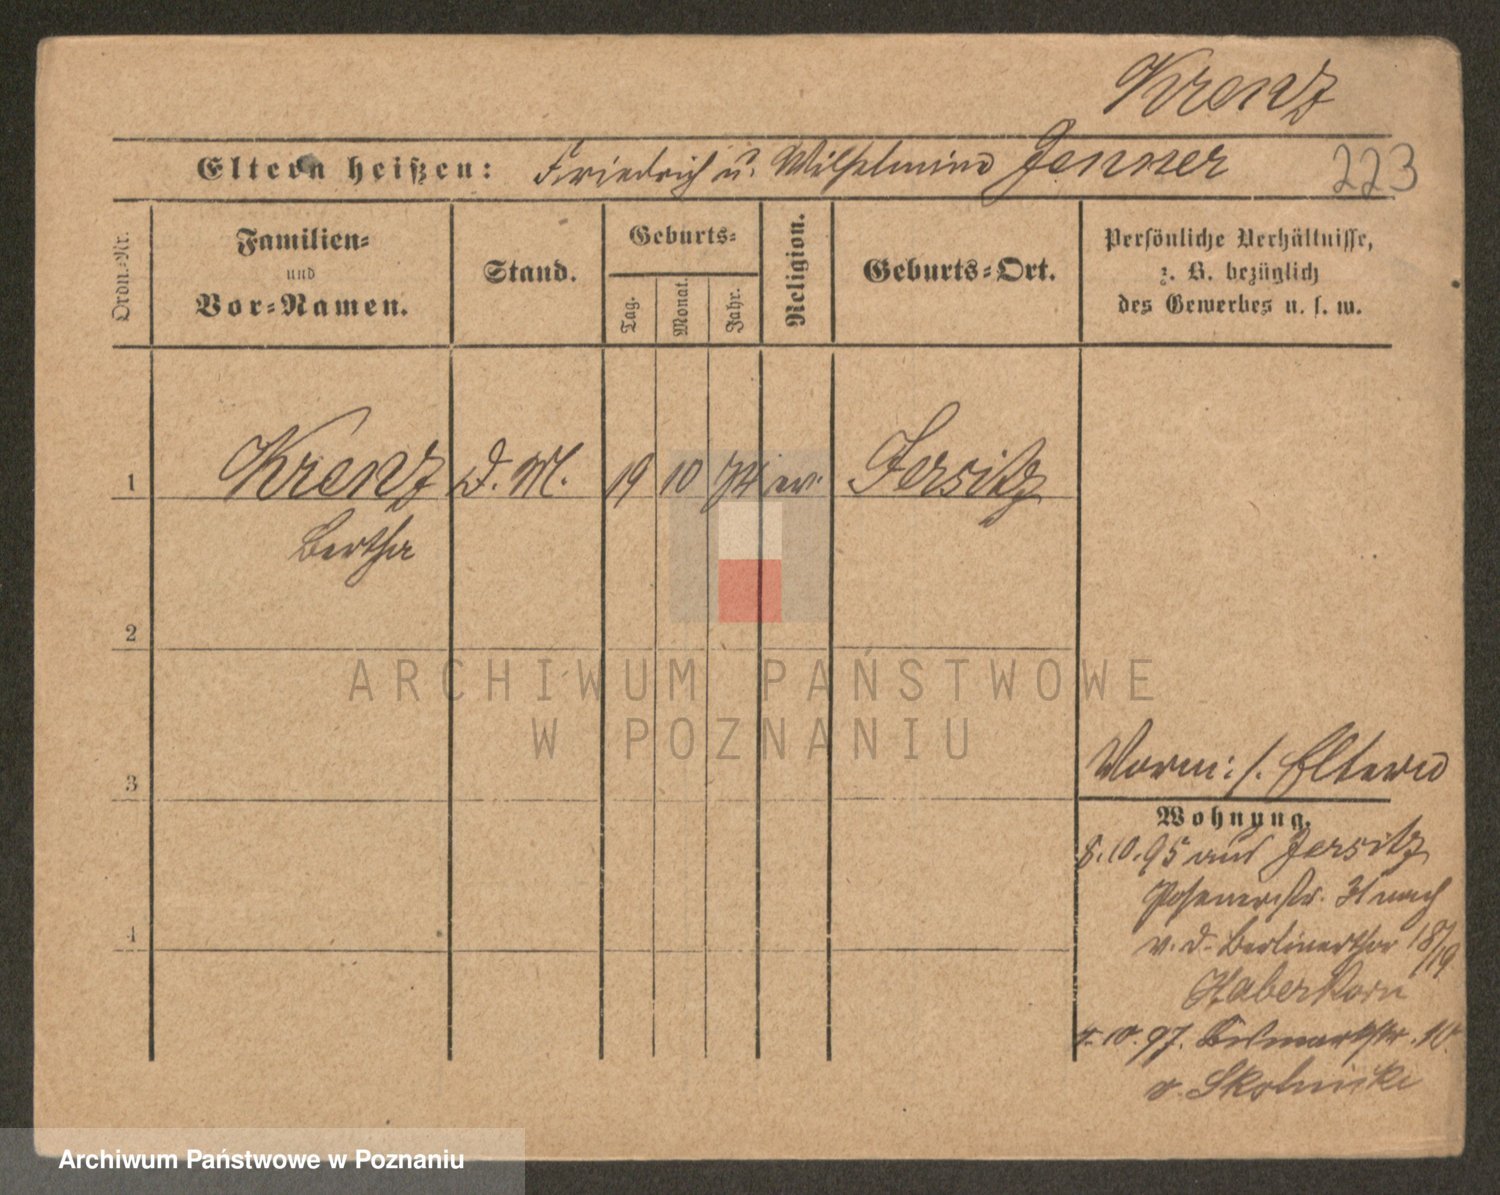 Krenz
Eltern heißen: Friedrich u. Wilhelmine Jenner 223
Ordn.-Nr.
Familien-
und
Vor-Namen.
Stand.
Geburts-
Tag.
Monat.
Jahr.
Religion.
Geburts-Ort.
Persönliche Verhältnisse,
z. B. bezüglich
des Gewerbes u. s. w.
1 Krenz D. M. 19 10 74 ev. Jersitz
Bertha
2
ARCHIWUM PAŃSTWOWE
W POZNANIU
3
Vorm: s. Eltern
Wohnung.
8.10.95 aus Jersitz
Posenerstr. 31 nach
v. d. Berlinerthor 18/19
Haberkorn
10.97. Bismarckstr. 10.
v. Skolnicki
4
Archiwum Państwowe w Poznaniu